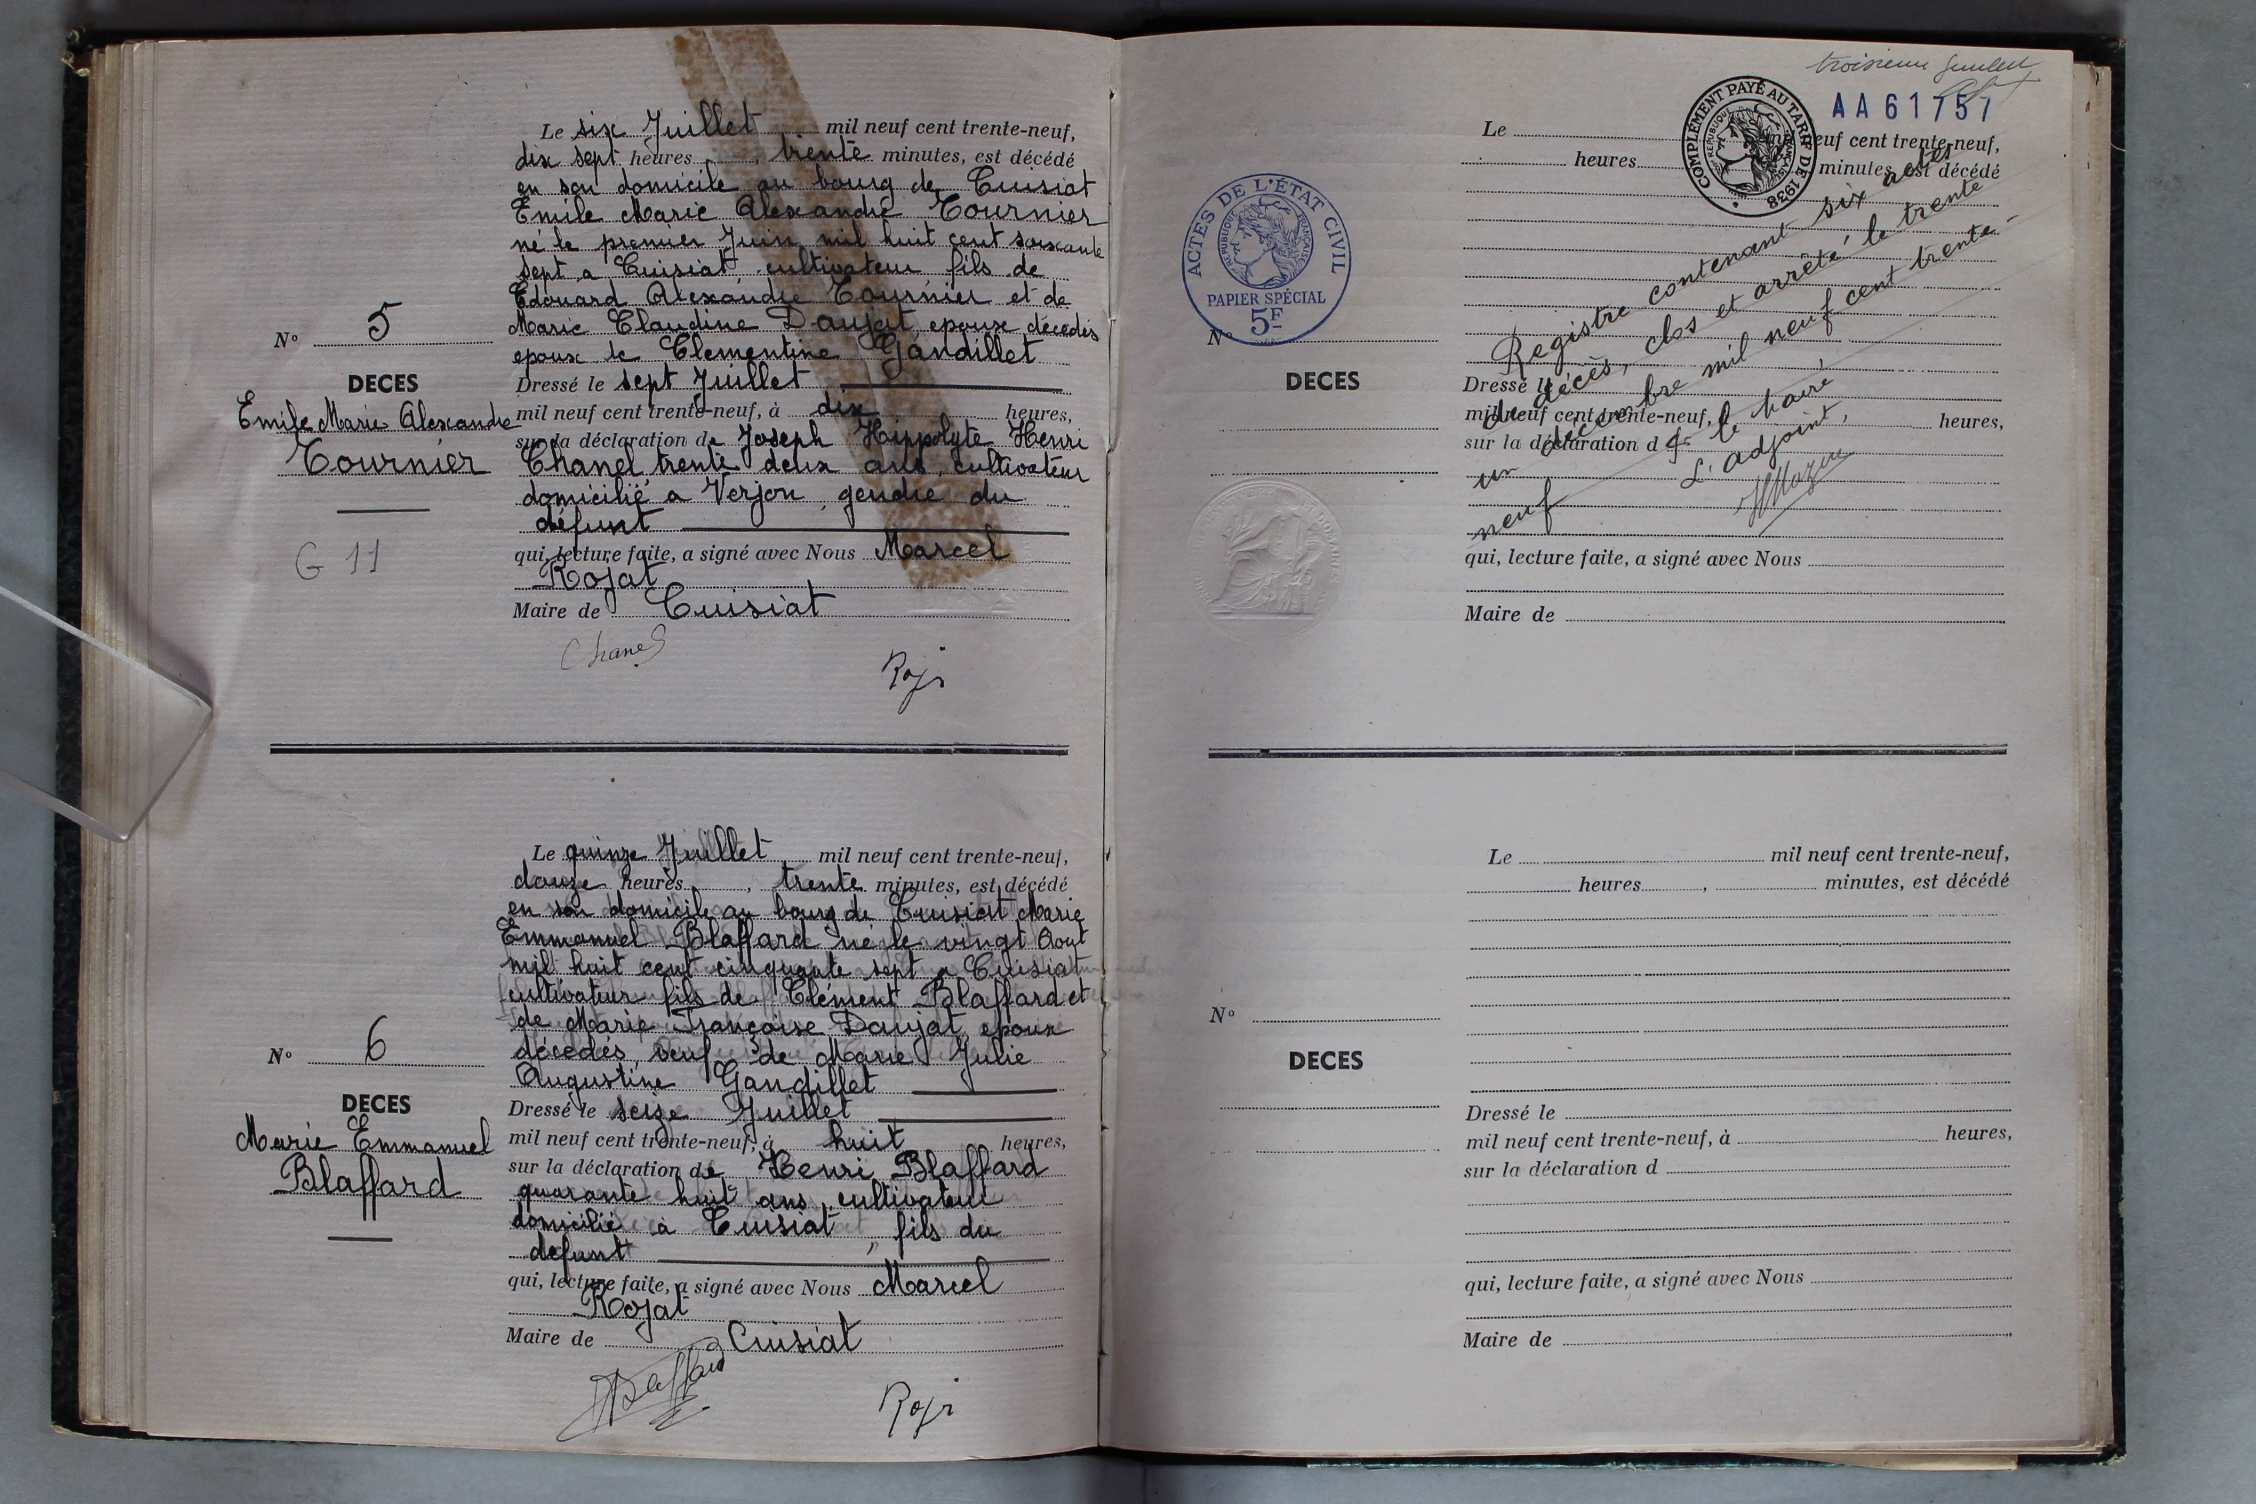 Le six Juillet mil neuf cent trente-neuf,
dix sept heures , trente minutes, est décédé
en son domicile au bourg de Cuisiat
Emile Marie Alexandre Tournier
né le premier Juin mil huit cent soixante
sept a Cuisiat cultivateur fils de
Edouard Alexandre Tournier et de
Marie Claudine Daujat epoux décedés
epoux de Clementine Gandillet
Dressé le sept Juillet
mil neuf cent trente-neuf, à dix heures,
sur la déclaration de Joseph Hippolyte Henri
Chanel trente deux ans, cultivateur
domicilié a Verjon, gendre du
defunt
qui, lecture faite, a signé avec Nous Marcel
Rojat
Maire de Cuisiat
Chanel
N° 5
DECES
Emile Marie Alexandre
Tournier
G 11
Le quinze Juillet mil neuf cent trente-neuf,
douze heures , trente minutes, est décédé
en son domicile au bourg de Cuisiat Marie
Emmanuel Blaffard né le vingt Aout
mil huit cent cinquante sept a Cuisiat
cultivateur fils de Clément Blaffard et
de Marie Françoise Daujat epoux
décedés, veuf de Marie Julie
Augustine Gandillet
Dressé le seize Juillet
mil neuf cent trente-neuf, à huit heures,
sur la déclaration de Henri Blaffard
quarante huit ans, cultivateur
domicilié a Cuisiat, fils du
defunt
qui, lecture faite, a signé avec Nous Marcel
Rojat
Maire de Cuisiat
Blaffard
N° 6
DECES
Marie Emmanuel
Blaffard
troisieme
AA61757
COMPLÉMENT PAYÉ AU TARIF DE 1938
REPUBLIQUE FRANÇAISE
ACTES DE L'ÉTAT CIVIL
REPUBLIQUE FRANÇAISE
PAPIER SPÉCIAL
5F
Le neuf cent trente-neuf,
heures minutes, est décédé
Registre contenant six actes
de décès, clos et arrêté le trente
un décembre mil neuf cent trente
neuf
le Maire,
L'adjoint,
N°
DECES
Dressé le
mil neuf cent trente-neuf, heures,
sur la déclaration d
qui, lecture faite, a signé avec Nous
Maire de
Le mil neuf cent trente-neuf,
heures , minutes, est décédé
N°
DECES
Dressé le
mil neuf cent trente-neuf, à heures,
sur la déclaration d
qui, lecture faite, a signé avec Nous
Maire de